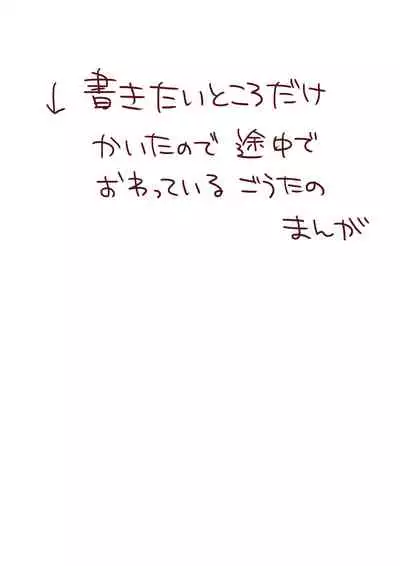 ↓書きたいところだけ
かいたので途中で
おわっているごうたの
まんが